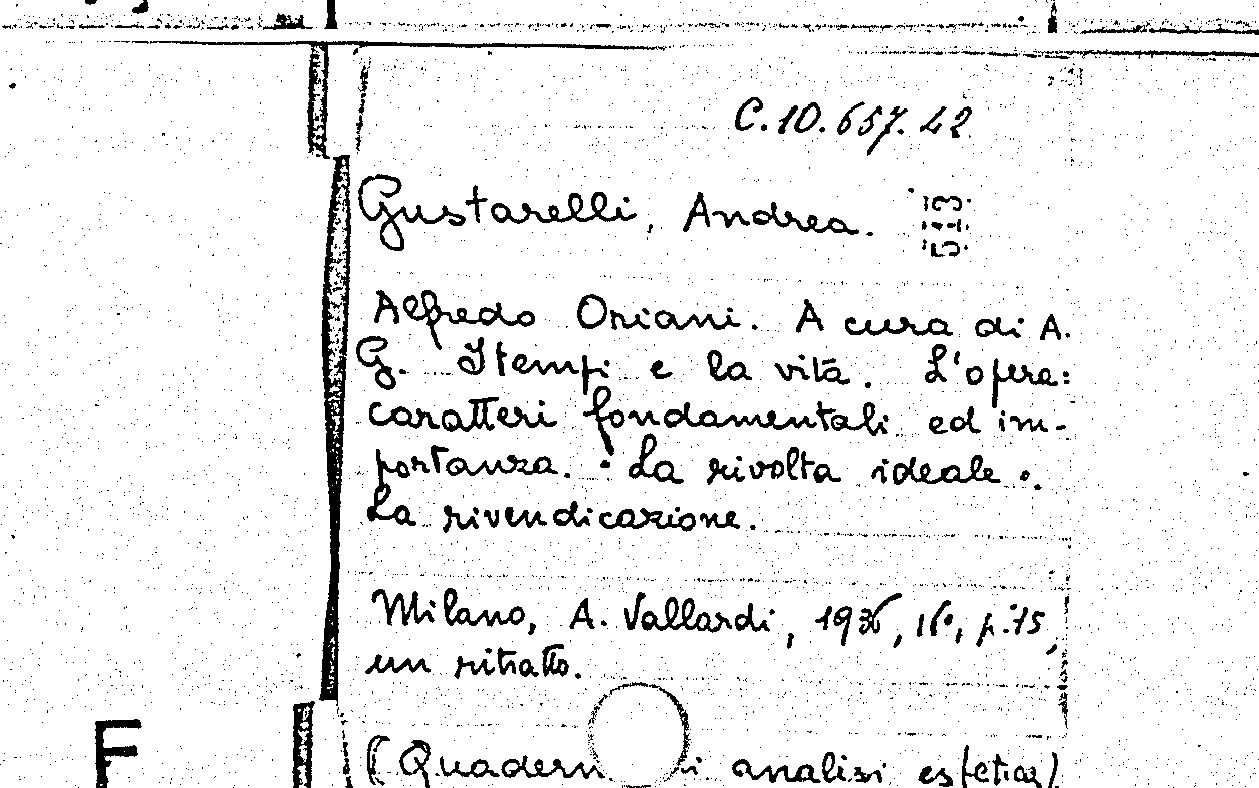 C.10.657.42
Gustarelli, Andrea.
Alfredo Oriani. A cura di A.
G. I tempi e la vita. L'opera:
caratteri fondamentali ed im-
portanza. "La rivolta ideale".
La rivendicazione.
Milano, A. Vallardi, 1936, 16°, p. 75,
un ritratto.
(Quadern i analisi estetica)
F